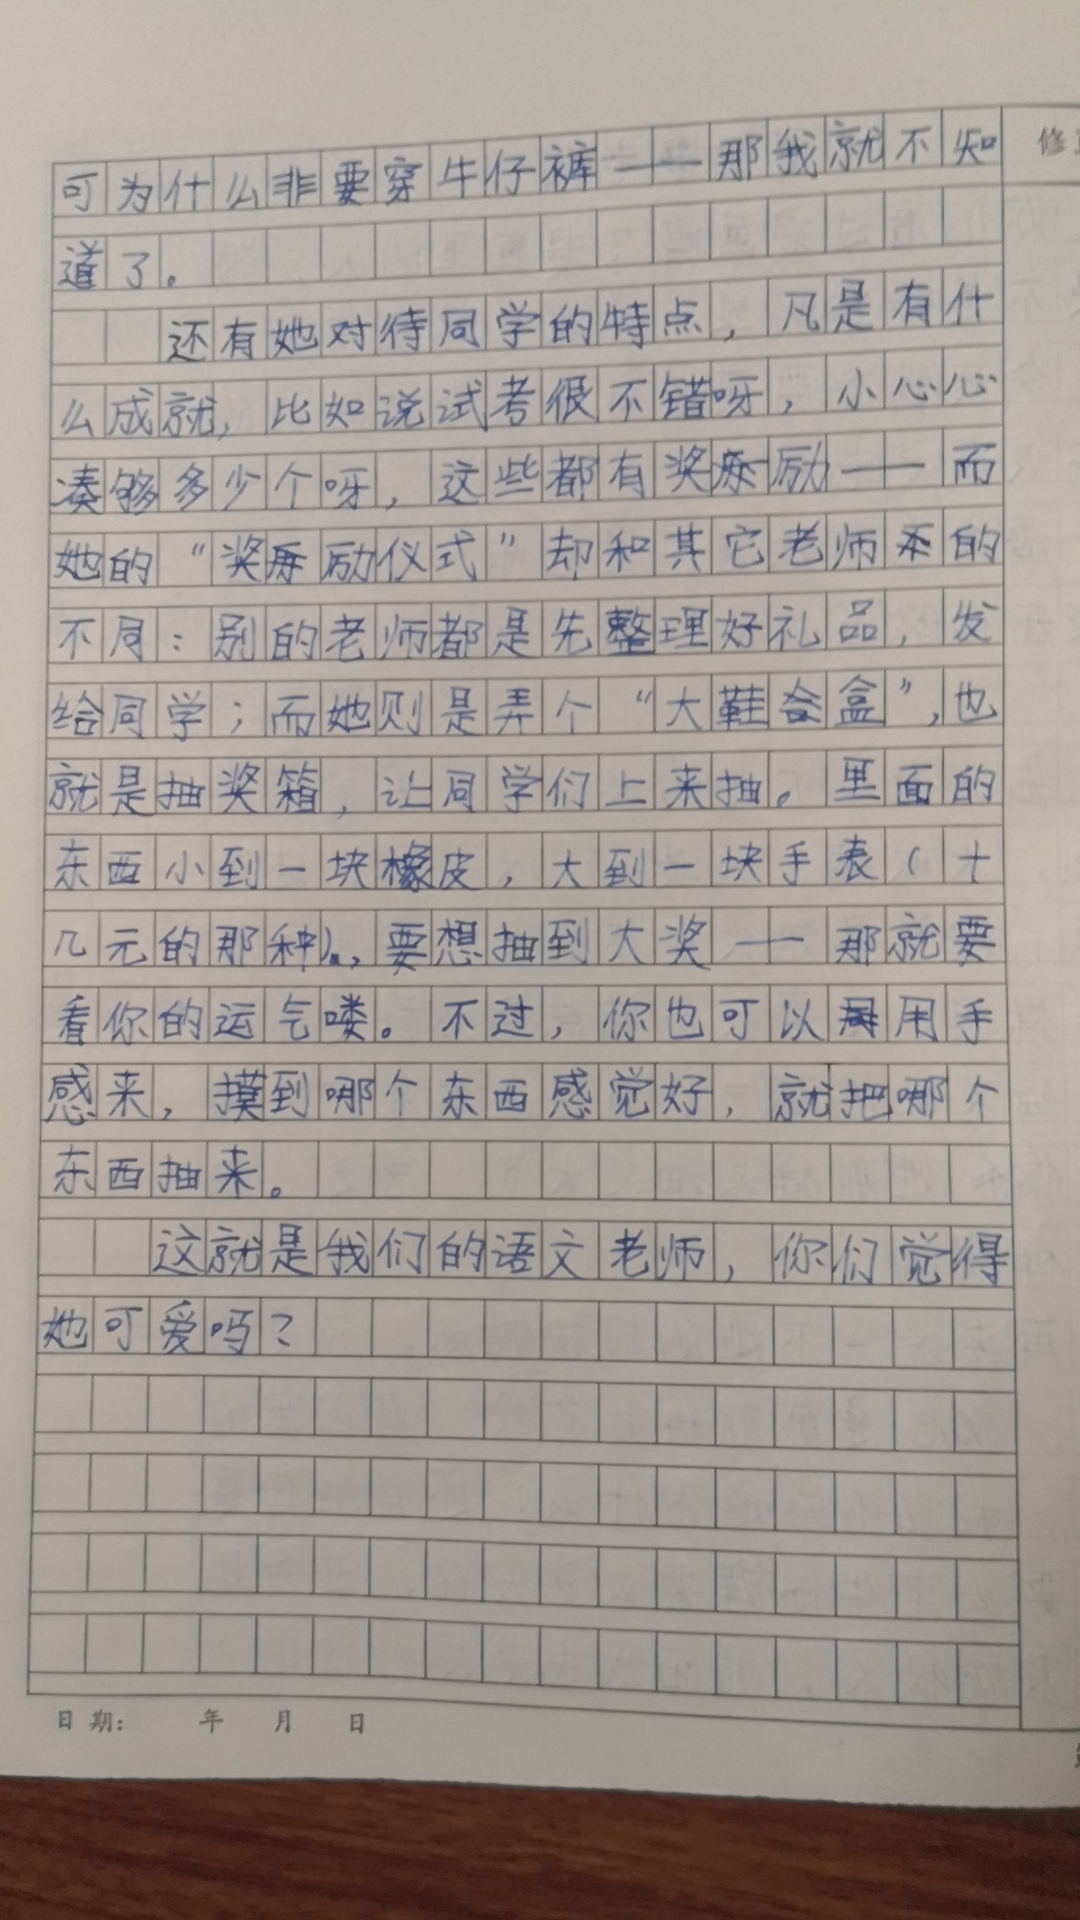 修
可为什么非要穿牛仔裤——那我就不知
道了。
还有她对待同学的特点，凡是有什
么成就，比如说试考很不错呀，小心心
凑够多少个呀，这些都有奖励——而
她的“奖励仪式”却和其它老师的
不同：别的老师都是先整理好礼品，发
给同学；而她则是弄个“大鞋盒”，也
就是抽奖箱，让同学们上来抽。里面的
东西小到一块橡皮，大到一块手表（十
几元的那种），要想抽到大奖——那就要
看你的运气喽。不过，你也可以用手
感来，摸到哪个东西感觉好，就把哪个
东西抽来。
这就是我们的语文老师，你们觉得
她可爱吗？
日期： 年 月 日